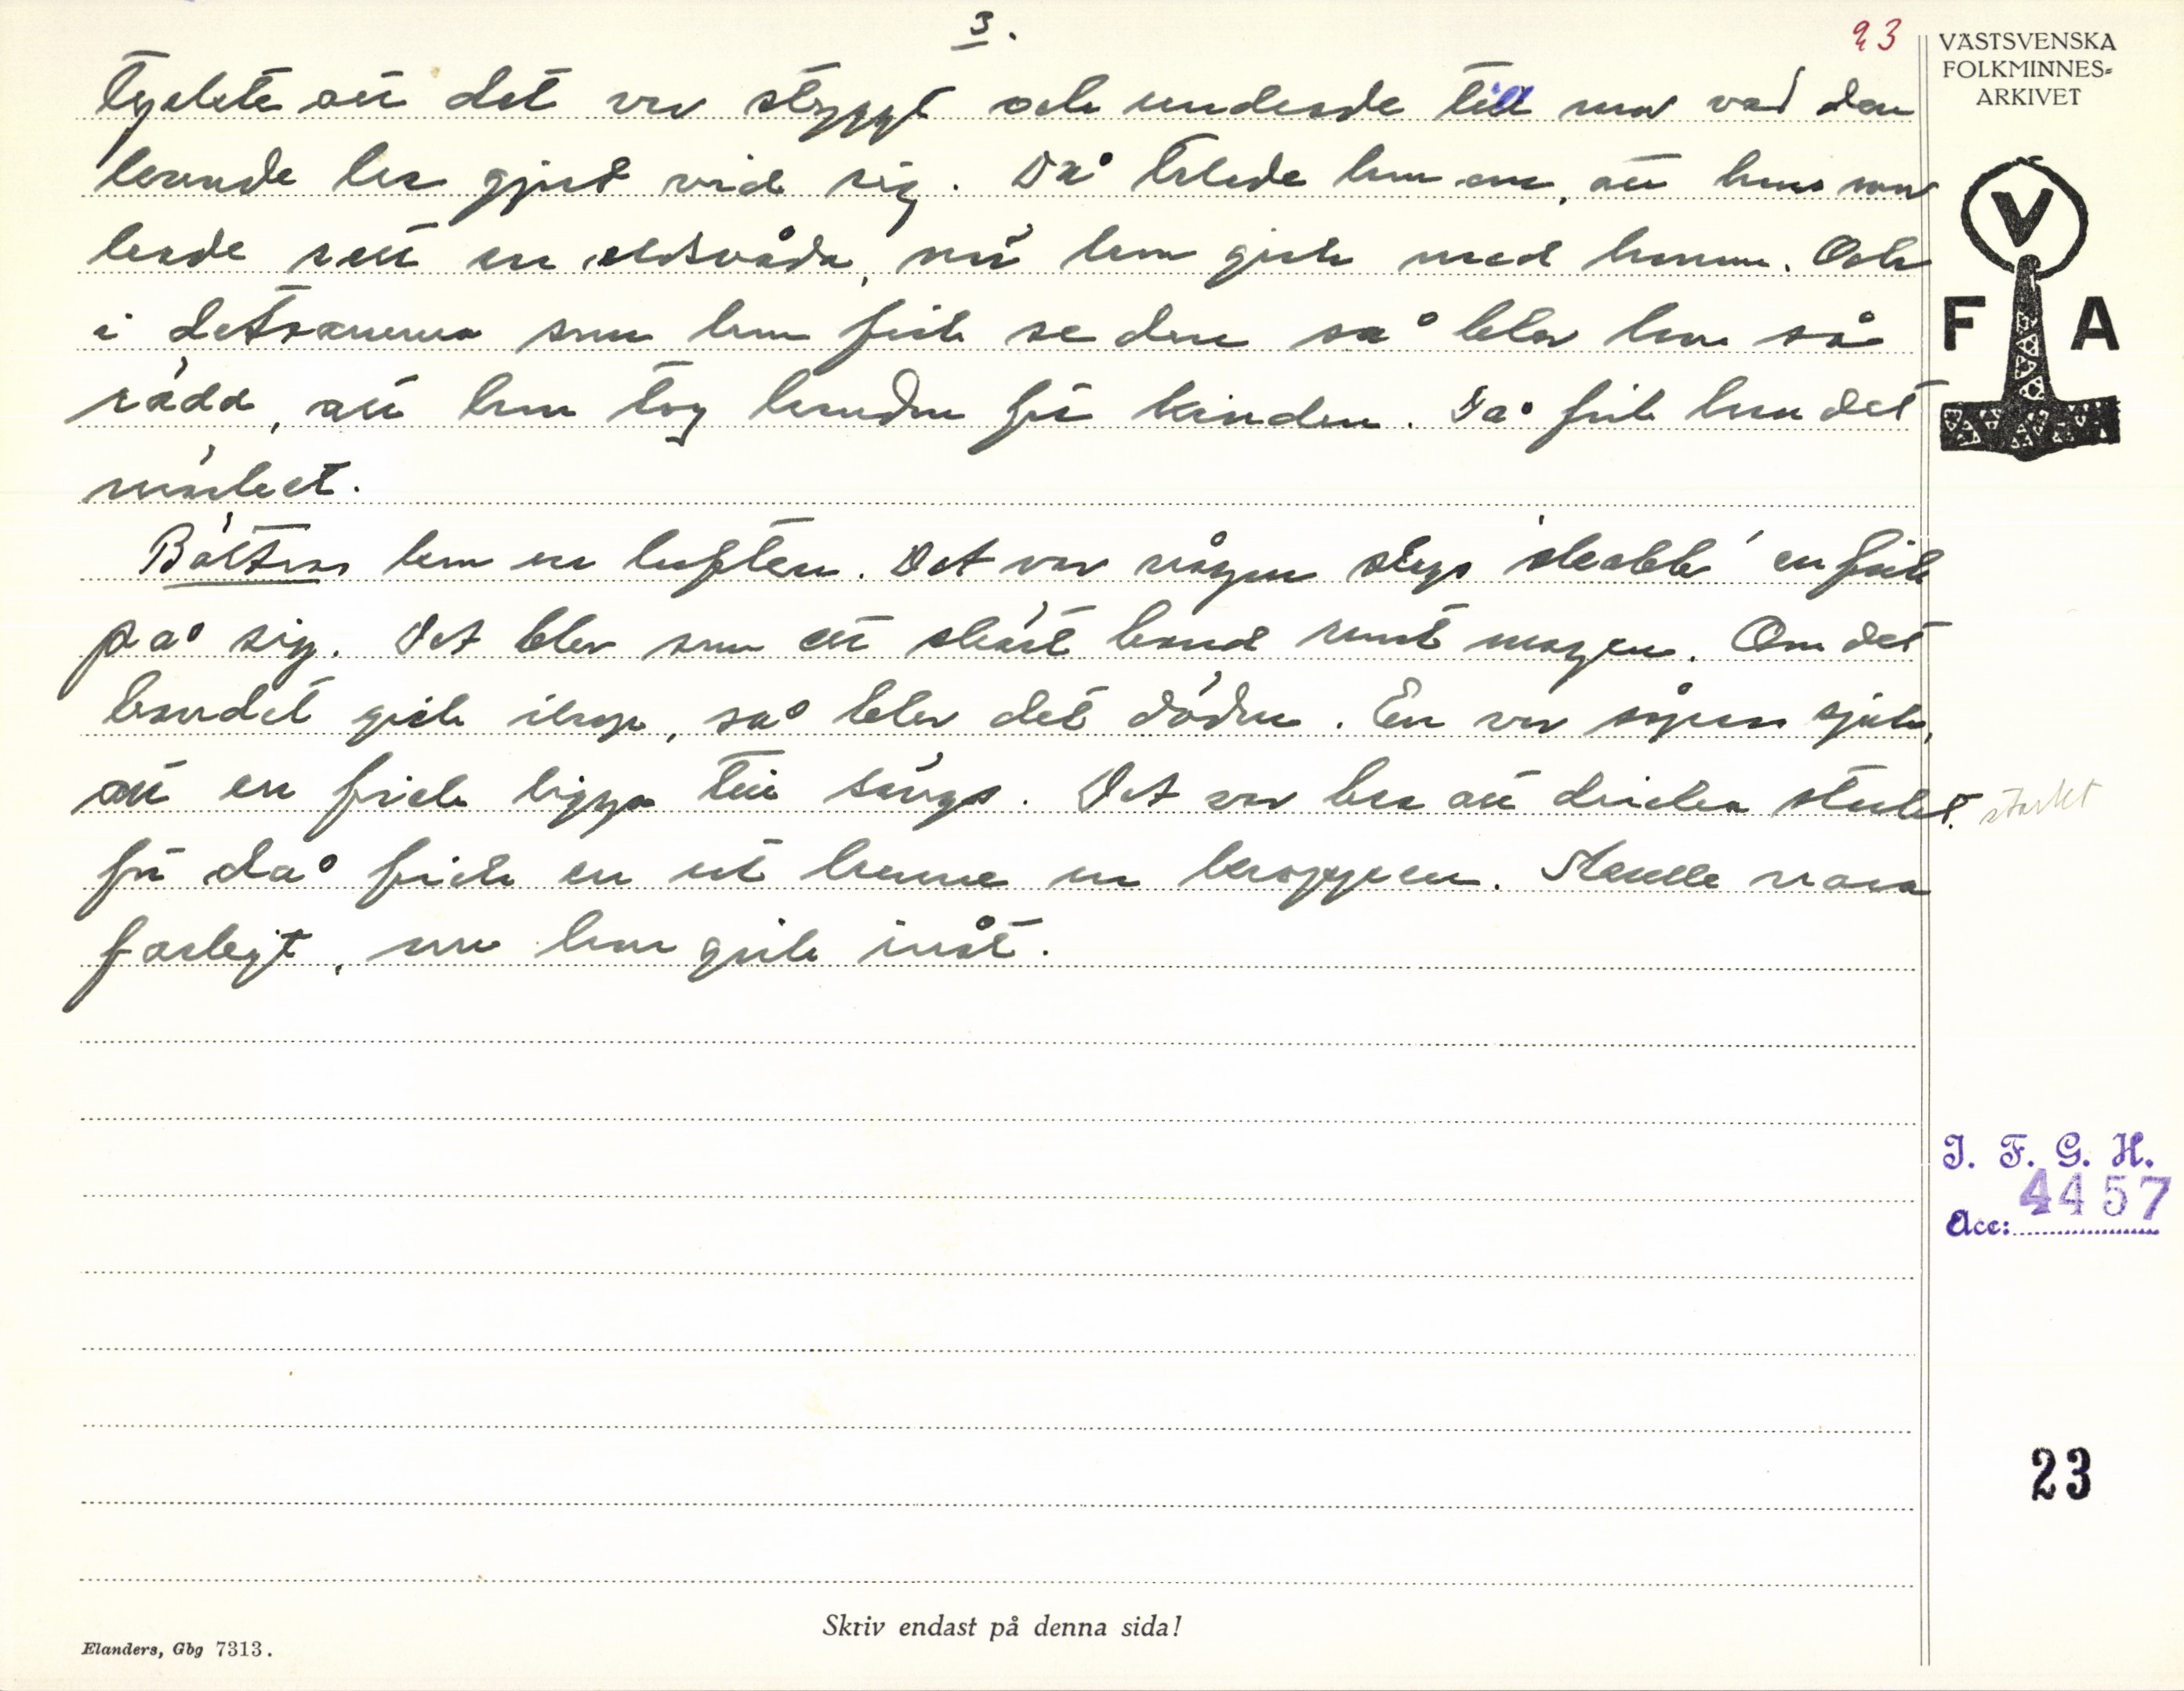 3.
23
VÄSTSVENSKA
FOLKMINNES=
ARKIVET
tyckte att det var styggt och undrade till mor vad den
hade gjort vid sig. Då talade hon om, att hon
hade sett en eldsvåda, när hon gick med honom. Och
i detsamma som hon fick se den så blev hon så
rädd, att hon tog handen för kinden. Då fick hon det
märket.
V
F A
Bältros kom ur luften. Det var någon slags 'skabb' en fick
på sig. Det blev som ett skärt band runt magen. Om det
bandet gick ihop, så blev det döden. En var någon sjuk,
att en fick ligga till sängs. Det var bra att dricka starkt. starkt
för då fick en ut henne ur kroppen. Skulle vara
farligt, om hon gick inåt.
I. F. G. H.
Acc: 4457
23
Skriv endast på denna sida!
Elanders, Gbg 7313.